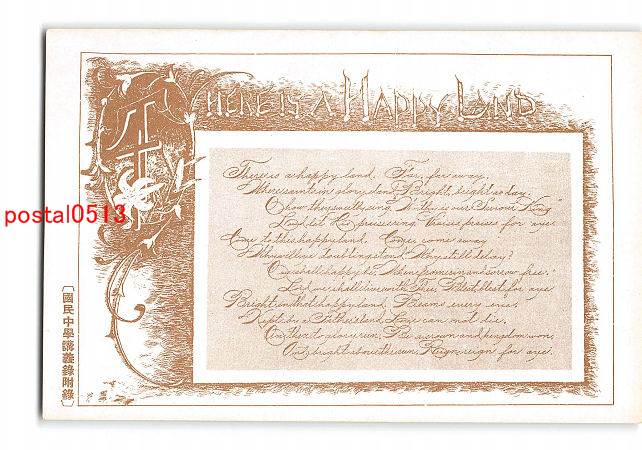 THERE IS A HAPPY LAND
There is a happy land, Far, far away,
Where saints in glory stand, Bright, bright as day.
O how they sweetly sing, Worthy is our Saviour King"
Loud let His praises ring, Praise, praise for aye.
Come to this happy land, Come, come away
Why will ye doubting stand, Why still delay?
O we shall happy be, When from sin and sorrow free;
Lord, we shall live with Thee, Blest, blest for aye
Bright in that happy land, Beams every eye;
Kept by a Father's hand, Love can not die,
On then to glory run, Be a crown and kingdom won,
And bright above the sun, Reign, reign for aye.
postal0513
〔國民中學講義錄附錄〕